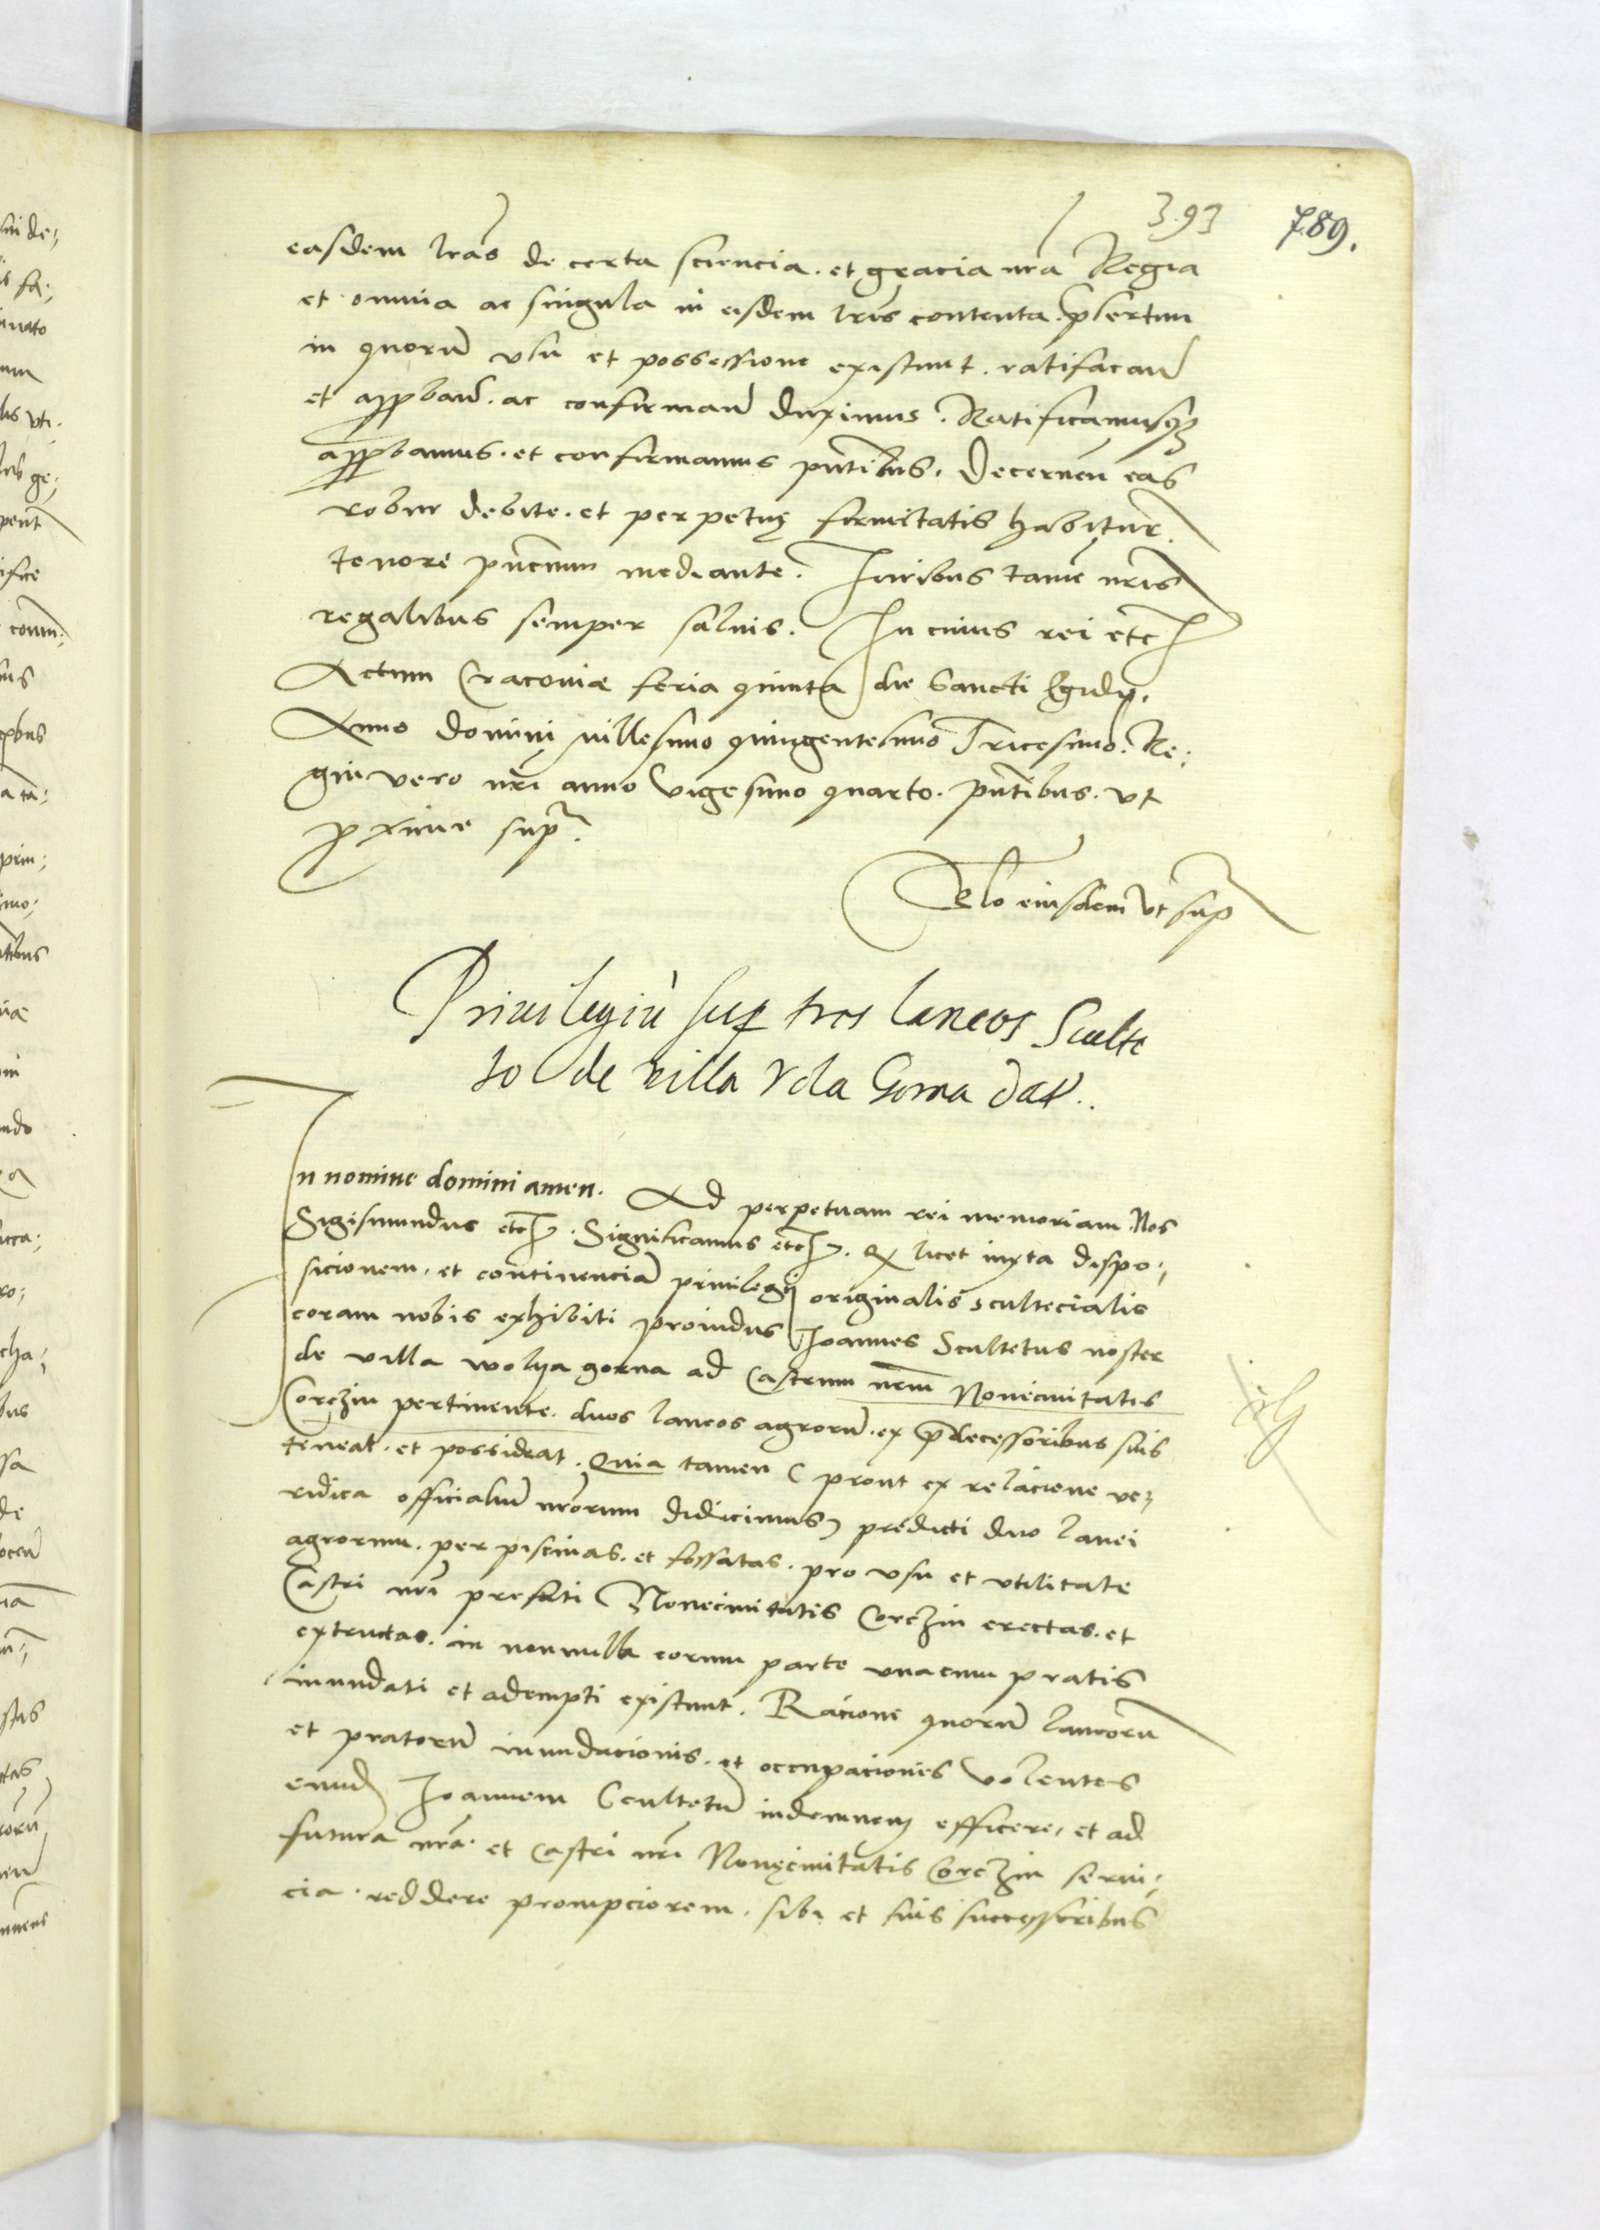 393 789.
easdem lras de certa sciencia. et gracia nra Regia
et omnia ac singula in eisdem lris contenta. psertim
in quorũ vsu et possessione existunt. ratificand
et appband. ac confirmand duximus. Ratificamusqꝫ
appbamus. et confirmamus pntibus. Decernen eas
robur debite. et perpetuę firmitatis habitur.
tenore pncium mediante. Iuribus tamẽ nris
regalibus semper saluis. In cuius rei etc
Actum Cracoviæ feria quinta die Sancti Egidii.
Anno domini millesimo quingentesimo Tricesimo. Re;
gni vero nri anno vigesimo quarto. pntibus. vt
proxime sup.
Relo eiusdem vt sup
Priuilegiũ sup tres laneos Sculte
to de villa Vola Gorna dat.
In nomine domini amen. Ad perpetuam rei memoriam. Nos
Sigismundus etc. Significamus etc. Q licet iuxta dispo;
sicionem. et continenciã priuilegii originalis scultecialis
coram nobis exhibiti prouidus Joannes Scultetus noster
de villa wolya gorna ad Castrum nrum Noueciuitatis
Corczin pertinente. duos laneos agrorũ. ex pdecessoribus suis
teneat. et possideat. Quia tamen ( prout ex relacione ve;
ridica officialiũ nrorum didicimus) predicti duo lanei
agrorum. per piscinas. et fossatas. pro vsu et vtilitate
Castri nri prefati Noueciuitatis Corczin erectas. et
extructas. in nonnulla eorum parte vnacum pratis
inundati et adempti existunt. Racione quorũ laneorũ
et pratorũ inundacionis. et occupacionis volentes
eund Joannem Scultetũ indemnem efficere, et ad
futura nra. et Castri nri Nouęciuitatis Corczin serui;
cia. reddere prompciorem. sibi et suis successoribus